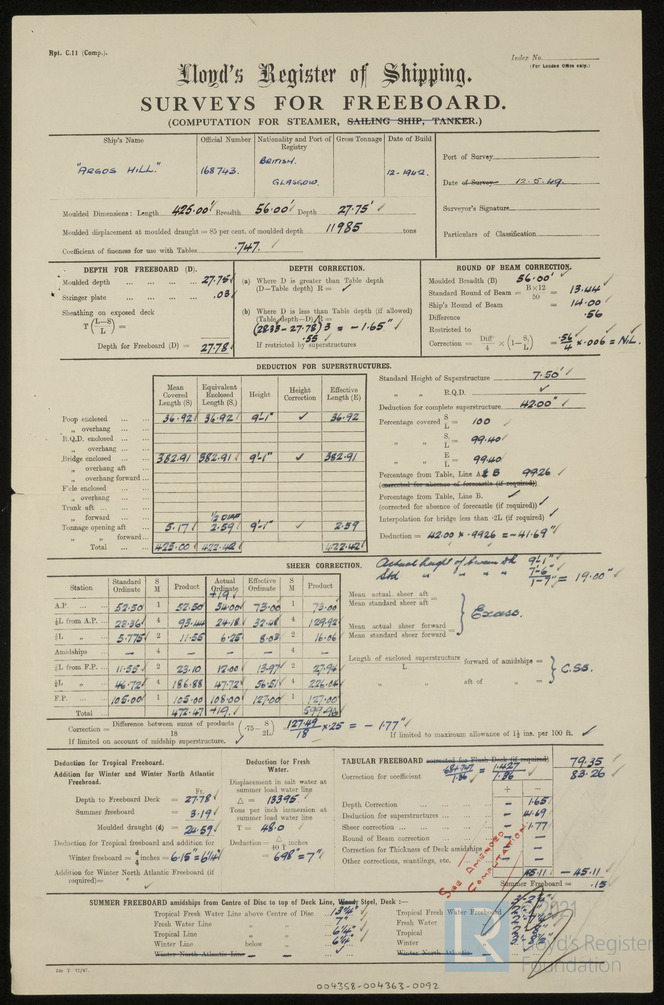 Rpt. C.11 (Comp.).
Index No.
(For London Office only.)
Lloyd's Register of Shipping.
SURVEYS FOR FREEBOARD.
(COMPUTATION FOR STEAMER, SAILING SHIP, TANKER.)
Ship's Name
Official Number
Nationality and Port of Registry
Gross Tonnage
Date of Build
"ARGOS HILL."
168743.
BRITISH.
GLASGOW.
12-1942.
Port of Survey
Date of Survey 12.5.49.
Surveyor's Signature
Particulars of Classification
Moulded Dimensions: Length 425.00' Breadth 56.00' Depth 27.75'
Moulded displacement at moulded draught = 85 per cent. of moulded depth 11985 tons
Coefficient of fineness for use with Tables .747.
DEPTH FOR FREEBOARD (D).
Moulded depth 27.75
Stringer plate .03
Sheathing on exposed deck
T (L-S/L) =
Depth for Freeboard (D) = 27.78
DEPTH CORRECTION.
(a) Where D is greater than Table depth
(D-Table depth) R =
(b) Where D is less than Table depth (if allowed)
(Table depth-D) R =
(28.33-27.78) 3 = -1.65"
.55
If restricted by superstructures
ROUND OF BEAM CORRECTION.
Moulded Breadth (B) 56.00'
Standard Round of Beam = B×12/50 = 13.44
Ship's Round of Beam = 14.00
Difference .56
Restricted to
Correction = Diff/4 × (1-S₁/L) = .56/4 × .006 = NIL.
DEDUCTION FOR SUPERSTRUCTURES.
Mean Covered Length (S)
Equivalent Enclosed Length (S₁)
Height
Height Correction
Effective Length (E)
Poop enclosed 36.92 36.92 9'-1" ✓ 36.92
" overhang
R.Q.D. enclosed
" overhang
Bridge enclosed 382.91 382.91 9'-1" ✓ 382.91
" overhang aft
" overhang forward
F'cle enclosed
" overhang
Trunk aft
" forward
Tonnage opening aft 5.17 2.59 9'-1" ✓ 2.59
" " forward
Total 425.00 422.42 422.42
Standard Height of Superstructure 7.50'
" " R.Q.D. ✓
Deduction for complete superstructure 42.00"
Percentage covered S/L = 100
" " S₁/L = 99.40
" " E/L = 99.40
Percentage from Table, Line A & B 99.26
(corrected for absence of forecastle (if required))
Percentage from Table, Line B.
(corrected for absence of forecastle (if required))
Interpolation for bridge less than ·2L (if required)
Deduction = 42.00 × .9926 = -41.69"
SHEER CORRECTION.
Station
Standard Ordinate
S M
Product
Actual Ordinate
Effective Ordinate
S M
Product
+19
A.P. 52.50 1 52.50 54.00 73.00 1 73.00
⅙L from A.P. 23.36 4 93.44 24.18 32.48 4 129.92
⅓L " 5.775 2 11.55 6.25 8.03 2 16.06
Amidships - 4 - - 4 -
⅓L from F.P. 11.55 2 23.10 12.00 13.97 2 27.94
⅙L " 46.72 4 186.88 47.72 56.51 4 226.04
F.P. 105.00 1 105.00 108.00 127.00 1 127.00
Total 472.47 +19. 599.96
Actual height of
Std " " " "
9'-1"
7'-6"
1'-7" = 19.00"
Mean actual sheer aft
Mean standard sheer aft =
Mean actual sheer forward
Mean standard sheer forward =
Excess.
Length of enclosed superstructure forward of amidships =
L
" " aft of " =
C.SS.
Correction = Difference between sums of products/18 (·75 - S/2L) = 127.49/18 × .25 = -1.77"
If limited on account of midship superstructure.
If limited to maximum allowance of 1½ ins. per 100 ft.
Deduction for Tropical Freeboard.
Addition for Winter and Winter North Atlantic Freeboard.
Ft.
Depth to Freeboard Deck = 27.78
Summer freeboard = 3.19
Moulded draught (d) = 24.59
Deduction for Tropical freeboard and addition for
Winter freeboard = d/4 inches = 6.15" = 6¼"
Addition for Winter North Atlantic Freeboard (if required) =
Deduction for Fresh Water.
Displacement in salt water at summer load water line
Δ = 13395
Tons per inch immersion at summer load water line
T = 48.0
Deduction = Δ/40 T inches
= 6.98" = 7"
TABULAR FREEBOARD corrected for Flush Deck (if required) 79.35
Correction for coefficient .747/1.36 = 1.427/1.36 83.26
+ -
Depth Correction - 1.65
Deduction for superstructures - 41.69
Sheer correction - 1.77
Round of Beam correction - -
Correction for Thickness of Deck amidships - -
Other corrections, scantlings, etc. - -
45.11 - 45.11
Summer Freeboard =
SEE AMENDED COMPUTATION
SUMMER FREEBOARD amidships from Centre of Disc to top of Deck Line, Wood, Steel, Deck :—
Tropical Fresh Water Line above Centre of Disc 13¼"
Fresh Water Line " 7"
Tropical Line " 6¼"
Winter Line below 6¼"
Winter North Atlantic Line " -
Tropical Fresh Water Freeboard
Fresh Water
Tropical
Winter
Winter North Atlantic
2021
Lloyd's Register
Foundation
004358-004363-0092